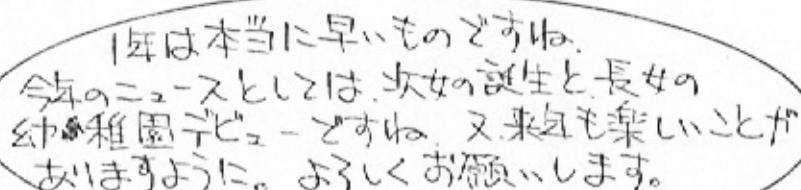 1年は本当に早いものですね.
今年のニュースとしては、次女の誕生と、長女の
幼稚園デビューですね. 又、来年も楽しいことが
ありますように。よろしくお願いします。